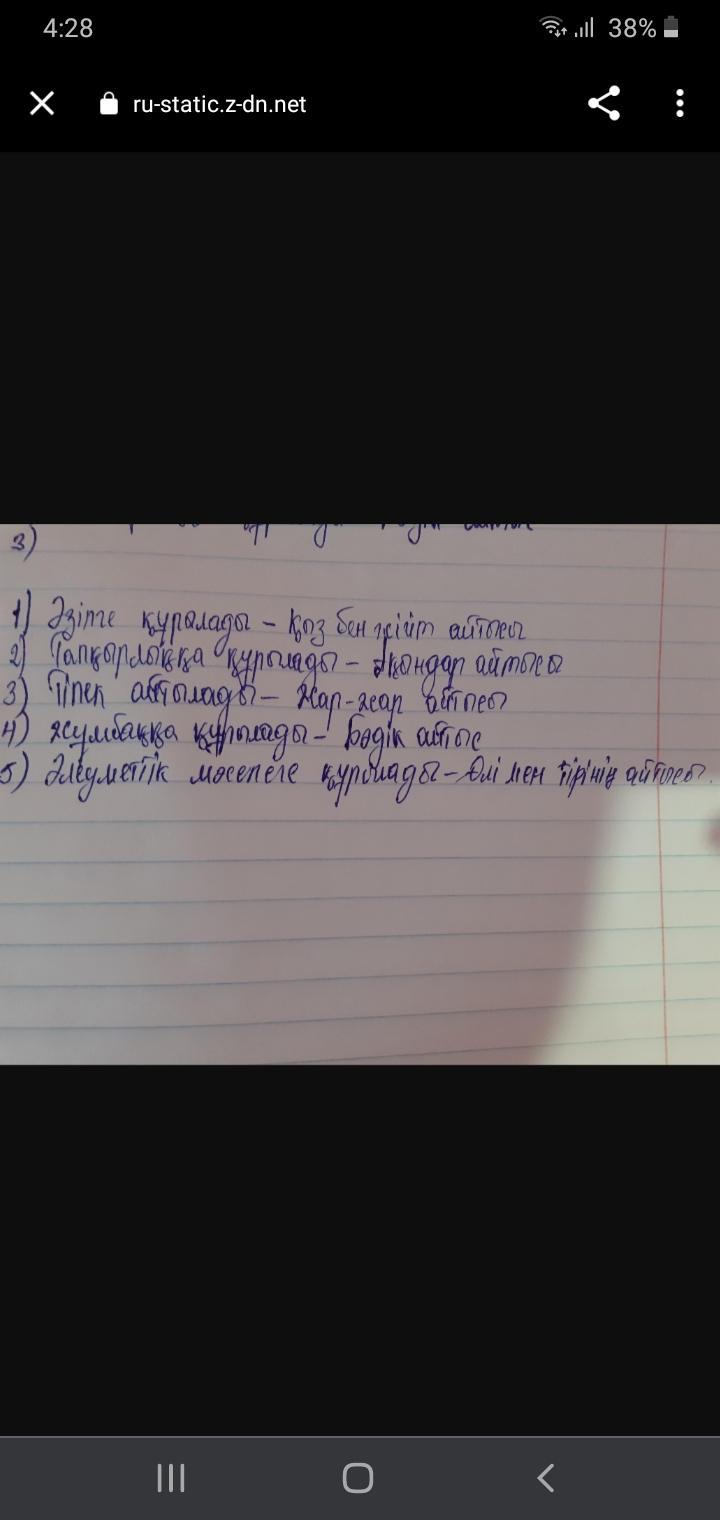 4:28
38%
ru-static.z-dn.net
3)
1) Әзілге құрылады – Қыз бен жігіт айтысы
2) Тапқырлыққа құрылады – Ақындар айтысы
3) Тілек айтылады – Жар-жар айтысы
4) Жұмбаққа құрылады – Бәдік айтыс
5) Әлеуметтік мәселеге құрылады – Өлі мен тірінің айтысы.